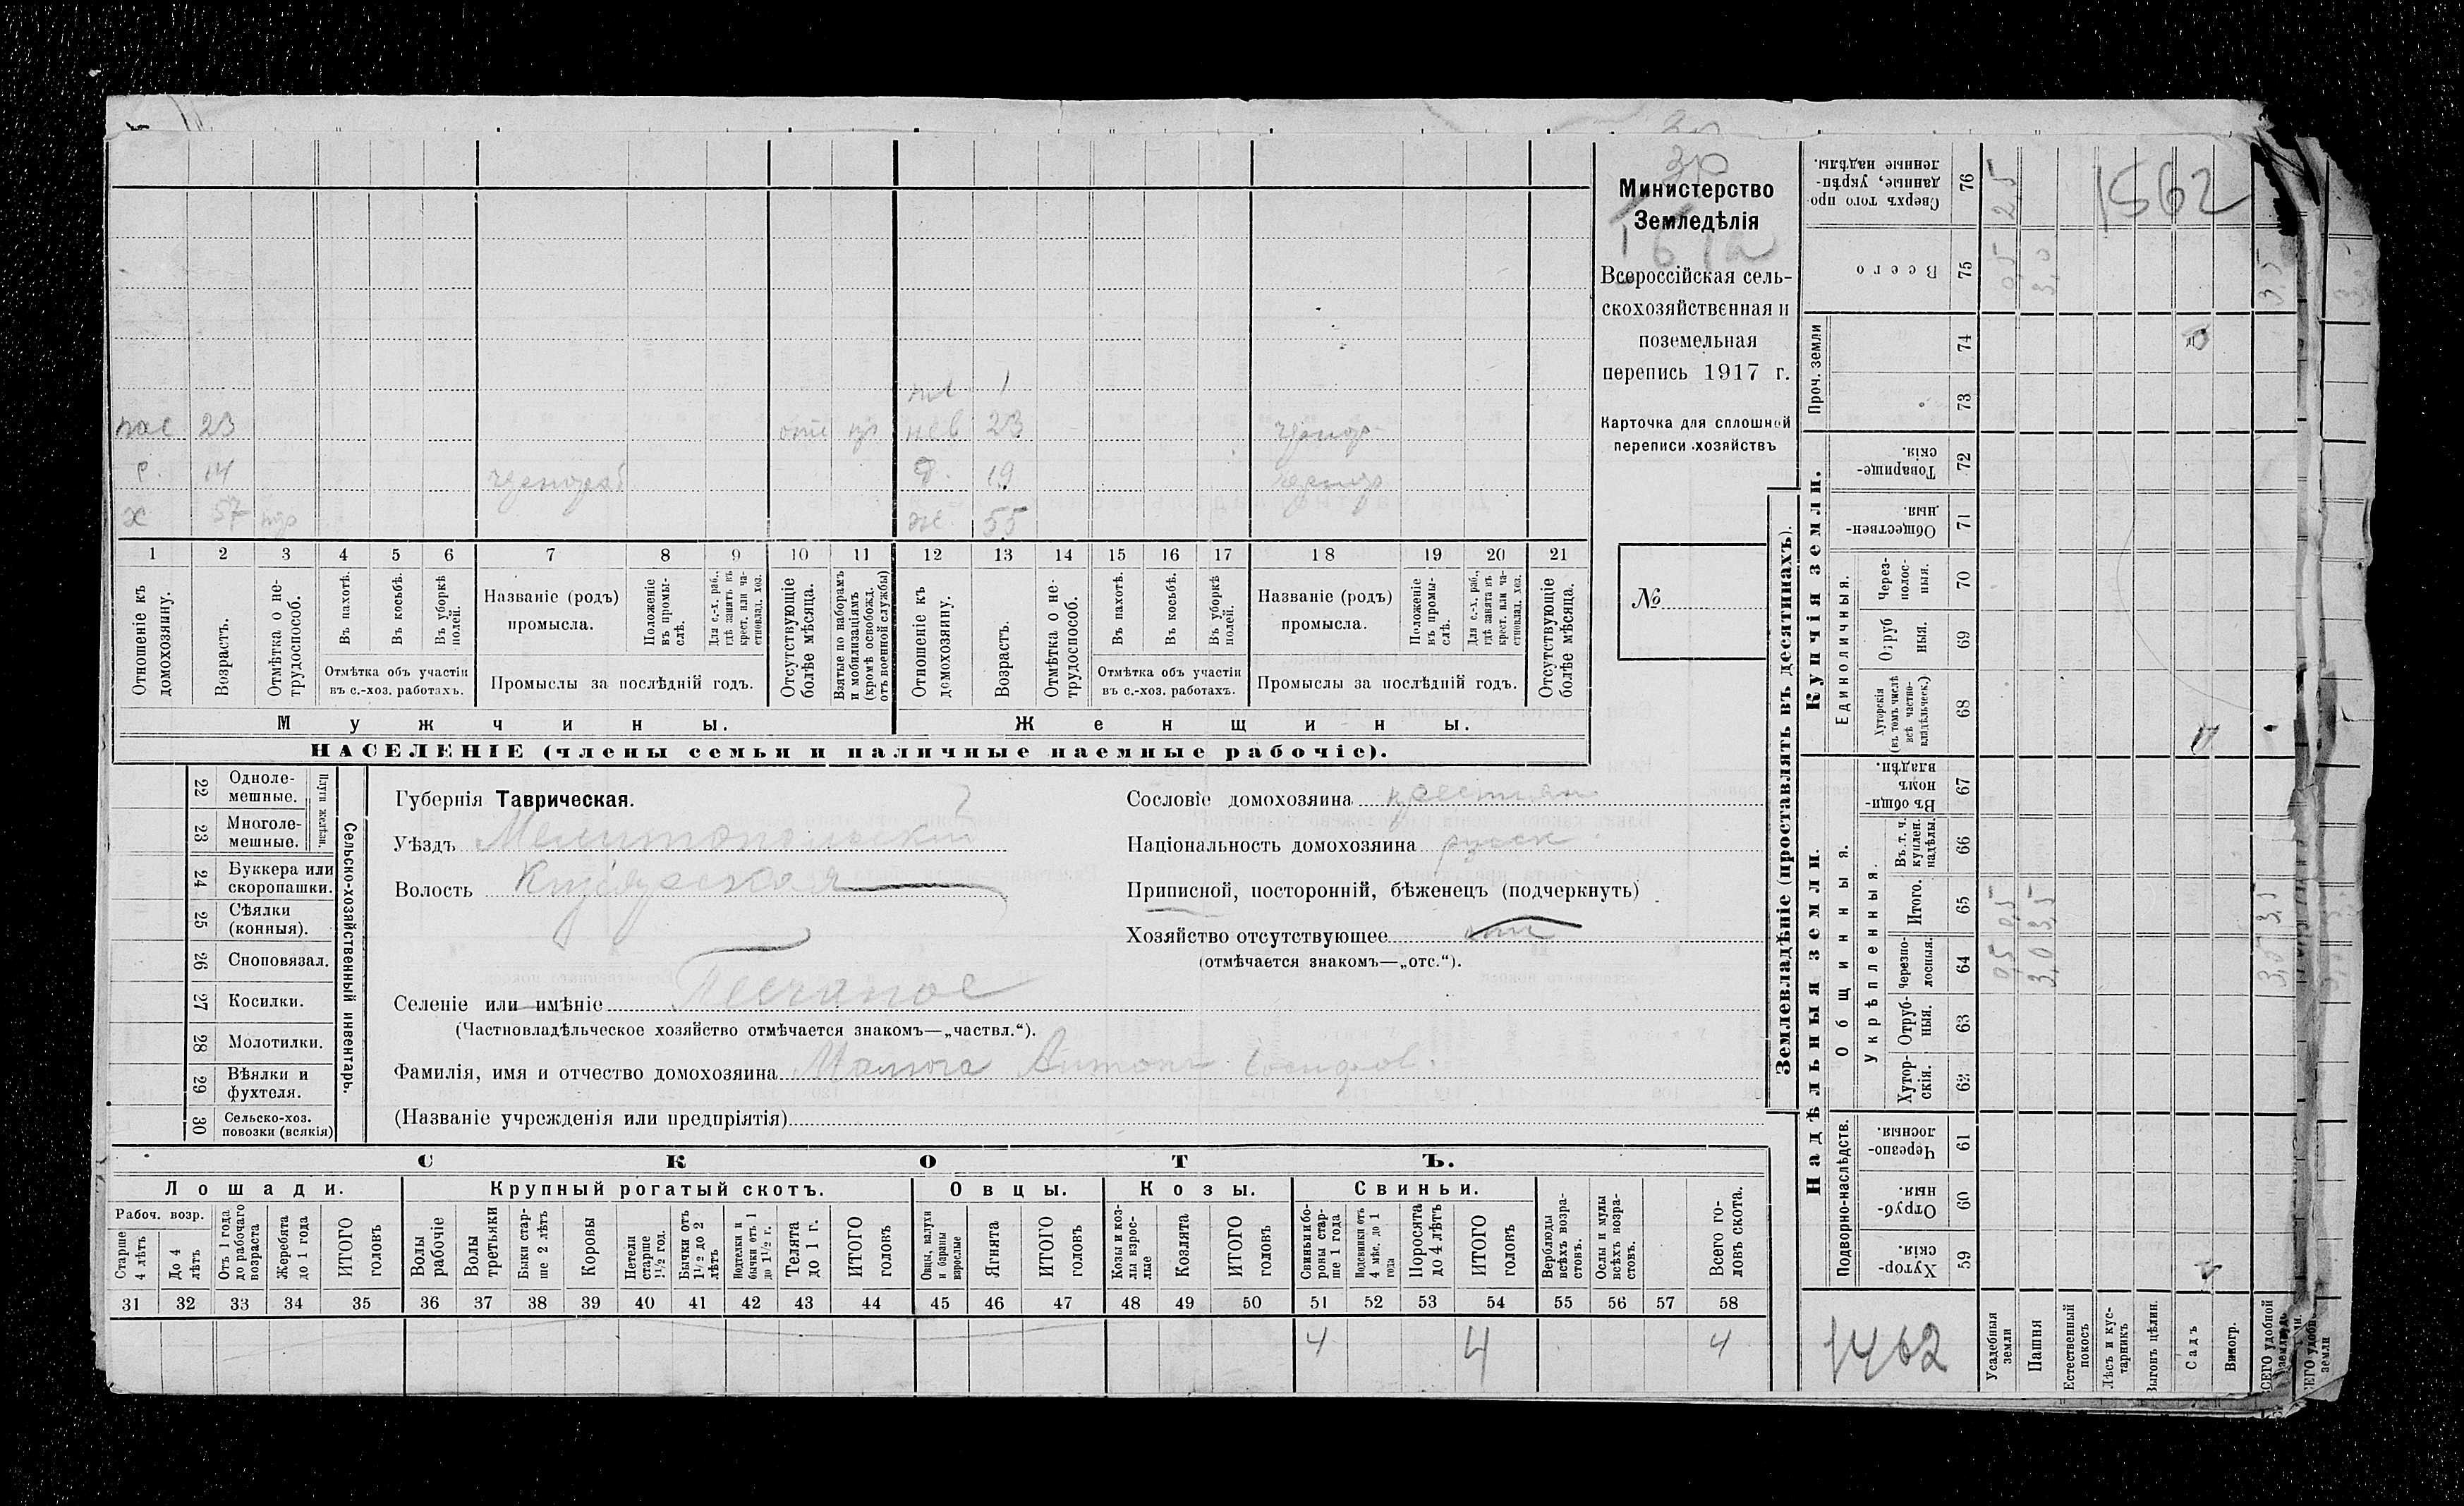 Министерство
Земледѣлія
Всероссійская сель-
скохозяйственная и
поземельная
перепись 1917 г.
Карточка для сплошной
переписи хозяйствъ
№
1562
пле 1
23 отс 23
14 чернораб 19
х 57 ж 55
1 2 3 4 5 6 7 8 9 10 11 12 13 14 15 16 17 18 19 20 21
Отношеніе къ домохозяину.
Возрастъ.
Отмѣтка о не-трудоспособ.
Въ пахотѣ.
Въ косьбѣ.
Въ уборкѣ полей.
Отмѣтка объ участіи
въ с.-хоз. работахъ.
Названіе (родъ)
промысла.
Положеніе въ промы-слѣ.
Для с.-х. раб., гдѣ занятъ въ крест. или ча-стновлад. хоз.
Промыслы за послѣдній годъ.
Отсутствующіе болѣе мѣсяца.
Взятые по наборамъ и мобилизаціямъ (кромѣ освобожд. отъ военной службы)
Отношеніе къ домохозяину.
Возрастъ.
Отмѣтка о не-трудоспособ.
Въ пахотѣ.
Въ косьбѣ.
Въ уборкѣ полей.
Отмѣтка объ участіи
въ с.-хоз. работахъ.
Названіе (родъ)
промысла.
Положеніе въ промы-слѣ.
Для с.-х. раб., гдѣ занята въ крест. или ча-стновлад. хоз.
Промыслы за послѣдній годъ.
Отсутствующіе болѣе мѣсяца.
Мужчины.
Женщины.
НАСЕЛЕНІЕ (члены семьи и наличные наемные рабочіе).
Сельско-хозяйственный инвентарь.
Плуги желѣзн.
22 Одноле-мешные.
23 Многоле-мешные.
24 Буккера или скоропашки.
25 Сѣялки (конныя).
26 Сноповязал.
27 Косилки.
28 Молотилки.
29 Вѣялки и фухтеля.
30 Сельско-хоз. повозки (всякія)
Губернія Таврическая.
Уѣздъ Мелитопольскій
Волость
Селеніе или имѣніе Песчаное
(Частновладѣльческое хозяйство отмѣчается знакомъ—„частвл.“).
Фамилія, имя и отчество домохозяина Малюга Антонъ Іосифов.
(Названіе учрежденія или предпріятія)
Сословіе домохозяина крестьян
Національность домохозяина русск
Приписной, посторонній, бѣженецъ (подчеркнуть)
Хозяйство отсутствующее отс
(отмѣчается знакомъ—„отс.“).
СКОТЪ.
Лошади. Крупный рогатый скотъ. Овцы. Козы. Свиньи.
Рабоч. возр.
Старше 4 лѣтъ
До 4 лѣтъ
Отъ 1 года до рабочаго возраста
Жеребята до 1 года
ИТОГО головъ
Волы рабочіе
Волы третьяки
Быки стар-ше 2 лѣтъ
Коровы
Нетели старше 1½ год.
Бычки отъ 1½ до 2 лѣтъ
Подтелки и бычки отъ 1 до 1½ г.
Телята до 1 г.
ИТОГО головъ
Овцы, валухи и бараны взрослые
Ягнята
ИТОГО головъ
Козы и коз-лы взрос-лые
Козлята
ИТОГО головъ
Свиньи и бо-роны стар-ше 1 года
Подсвинки отъ 4 мѣс. до 1 года
Поросята до 4 лѣтъ
ИТОГО головъ
Верблюды всѣхъ возра-стовъ.
Ослы и мулы всѣхъ возра-стовъ.
Всего го-ловъ скота.
31 32 33 34 35 36 37 38 39 40 41 42 43 44 45 46 47 48 49 50 51 52 53 54 55 56 57 58
4 4 4
Землевладѣніе (проставлять въ десятинахъ).
Сверхъ того про-данные, укрѣп-ленные надѣлы. 76 2,5
Всего 75 0,5 3,0 3,5
Проч. земли
74
73
Купчія земли.
Товарище-скія. 72
Обществен-ныя. 71
Единоличныя.
Через-полос-ныя. 70
Отруб ныя. 69
Хуторскія (въ томъ числѣ всѣ частно-владѣльческ.) 68
Надѣльныя земли.
Общинныя.
Въ общи-номъ владѣн. 67
Укрѣпленныя.
Въ т. ч. куплен. надѣлы. 66
Итого. 65 0,5 3,5
Черезпо-лосныя. 64 0,5 3,0 3,5
Отруб-ныя. 63
Хутор-скія. 62
Подворно-наслѣдств.
Черезпо-лосныя. 61
Отруб-ныя. 60
Хутор-скія. 59
1462
Усадебныя земли
Пашня
Естественный покосъ
Лѣсъ и кус-тарникъ
Выгонъ цѣлин.
Садъ
Виногр.
удобной